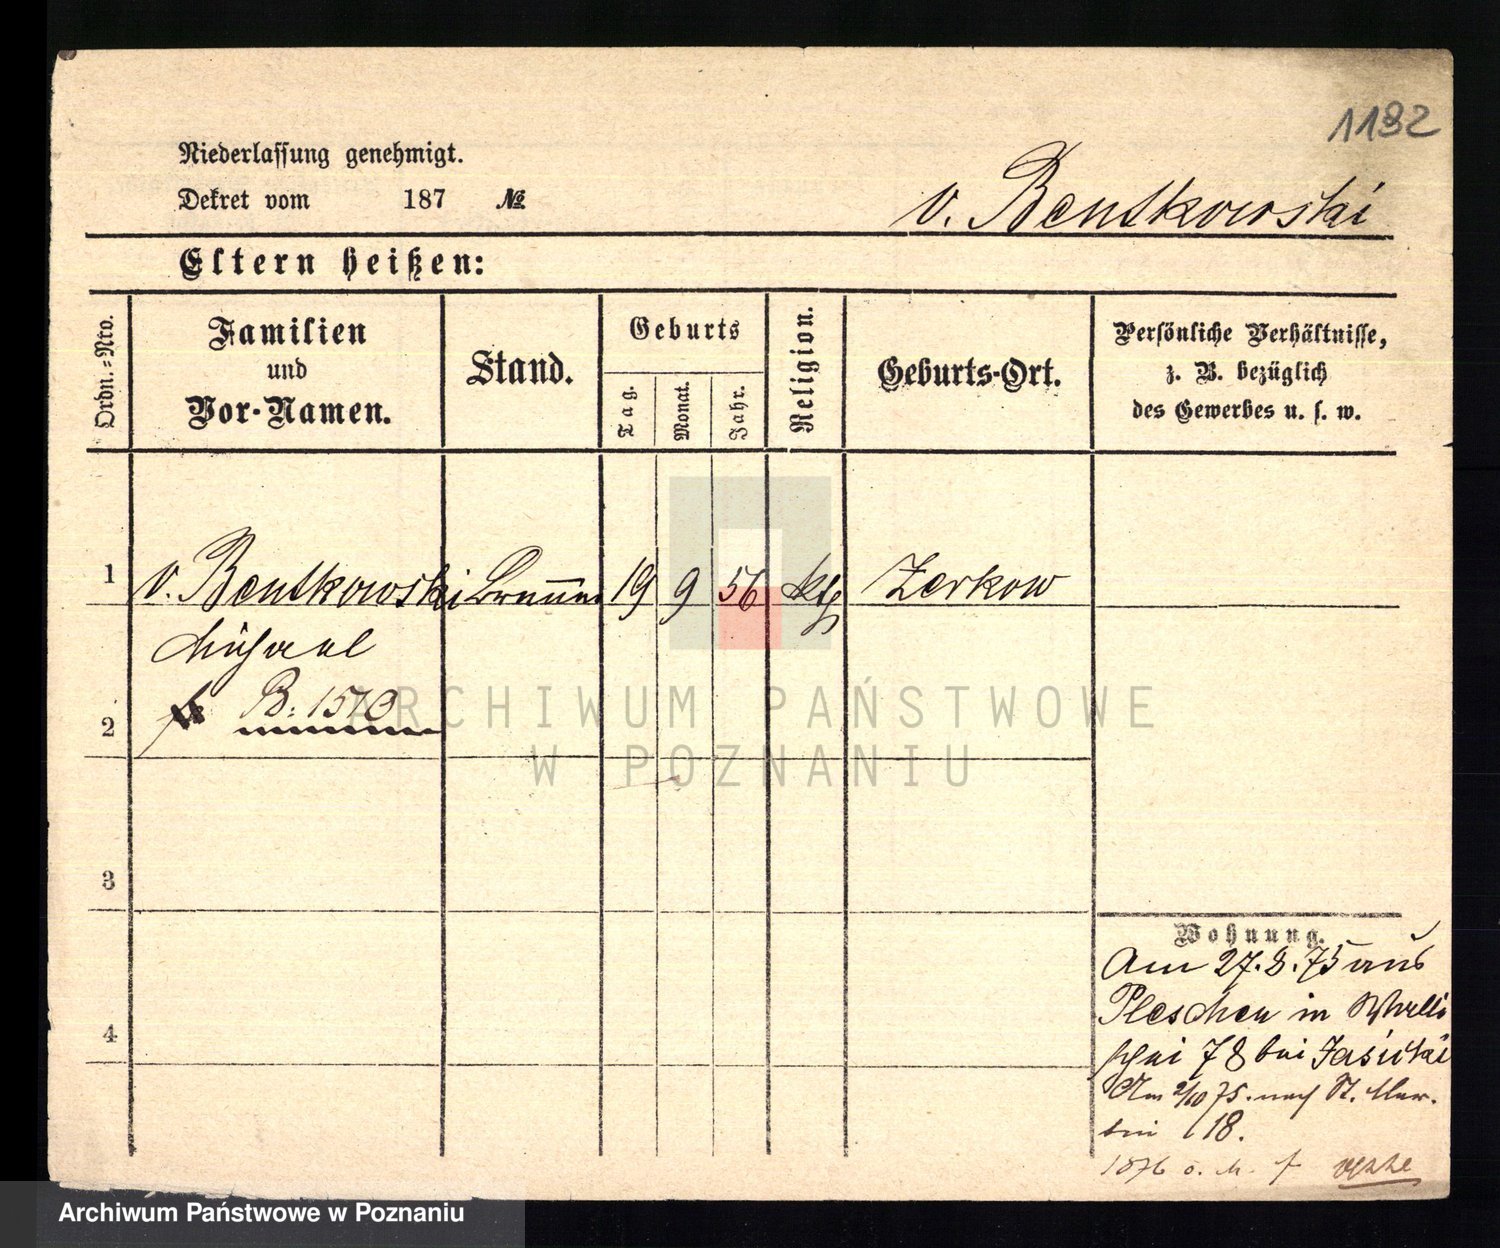 1182
Niederlassung genehmigt.
Dekret vom 187 №
v. Bentkowski
Eltern heißen:
Ordn.-Nro.
Familien
und
Vor-Namen.
Stand.
Geburts
Tag.
Monat.
Jahr.
Religion.
Geburts-Ort.
Persönliche Verhältnisse,
z. B. bezüglich
des Gewerbes u. s. w.
1 v. Bentkowski 19 9 56 kth Zerkow
Michael
2 B. 1570
3
4
Wohnung.
Am 27.8.75 aus
Pleschen in Walli
schei 78 bei
Am 2/10 75. nach St. Mar.
tin 18.
1876 o. M.
ARCHIWUM PAŃSTWOWE
W POZNANIU
Archiwum Państwowe w Poznaniu